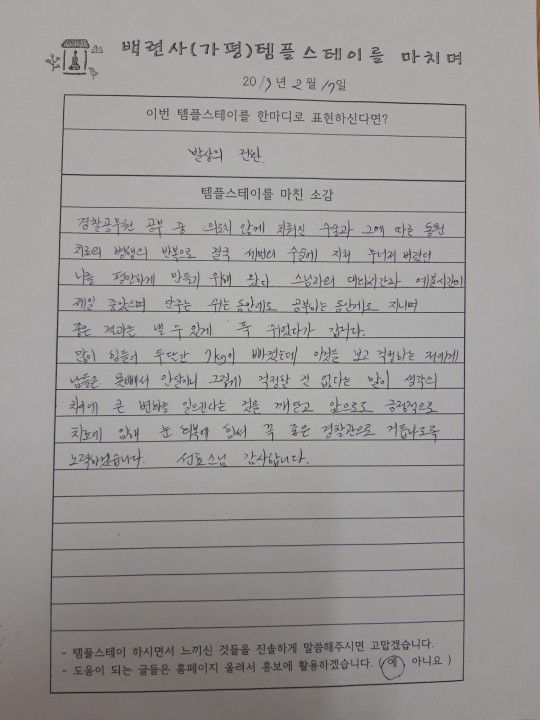 백련사(가평)템플스테이를 마치며
2019년 2월 17일
이번 템플스테이를 한마디로 표현하신다면?
발상의 전환.
템플스테이를 마친 소감
경찰공무원 공부 중 의도치 않게 치뤄진 수술과 그에 따른 통원
치료의 병행의 반복으로 결국 세번의 수술에 지쳐 무너져 버렸던
나를 평안하게 만들기 위해 왔다. 스님과의 대화시간과 예불시간이
제일 좋았으며 단주는 쉬는 동안에도 공부하는 동안에도 지니며
좋은 결과는 낼 수 있게 푹 쉬었다가 갑니다.
많이 힘들어 두달간 7kg이 빠졌는데 이것을 보고 걱정하는 저에게
남들은 못빼서 안달이니 그렇게 걱정할 것 없다는 말이 생각의
차이에 큰 변화를 일으킨다는 것을 깨닫고 앞으로도 긍정적으로
치료에 임해 눈 회복에 힘써 꼭 좋은 경찰관으로 거듭나도록
노력하겠습니다. 선효스님 감사합니다.
- 템플스테이 하시면서 느끼신 것들을 진솔하게 말씀해주시면 고맙겠습니다.
- 도움이 되는 글들은 홈페이지 올려서 홍보에 활용하겠습니다. ( 예 아니요 )